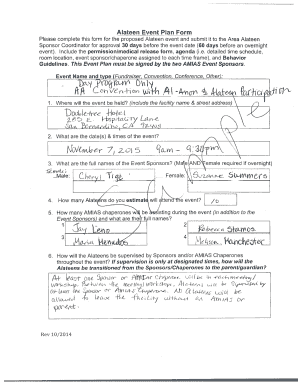 Alateen Event Plan Form
Please complete this form for the proposed Alateen event and submit it to the Area Alateen
Sponsor Coordinator for approval 30 days before the event date (60 days before an overnight
event). Include the permission/medical release form, agenda (i.e. detailed time schedule,
room location, event sponsor/chaperone assigned to each time frame), and Behavior Guidelines.
This Event Plan must be signed by the two AMIAS Event Sponsors.
Event Name and type (Fundraiser, Convention, Conference, Other):
Day Program Only
AA Convention with Al-Anon & Alateen Participation
1. Where will the event be held? (include the facility name & street address)
Doubletree Hotel
285 E Hospitality Lane
San Bernardino, CA
2. What are the date(s) & times of the event?
November 7, 2015 9am - 9:30pm
3. What are the full names of the Event Sponsors? (Male AND Female required if overnight)
Male: Cheryl Female: Suzanne Summers
4. How many Alateens do you estimate will attend the event? 10
5. How many AMIAS chaperones will be assisting during the event (in addition to the
Event Sponsors) and what are their full names?
1 Jay Leno 2 Rebecca Stamos
3 Maria 4 Melissa Manchester
6. How will the Alateens be supervised by Sponsors and/or AMIAS Chaperones
throughout the event? If supervision is only at designated times, how will the
Alateens be transitioned from the Sponsors/Chaperones to the parent/guardian?
At least one Sponsor or AMIAS Chaperone will be in each meeting/
workshop. Between the meetings/workshops, Alateens will be supervised by
at least one Sponsor or AMIAS Chaperone. No Alateens will be
allowed to leave the facility without an AMIAS or
parent.
Rev 10/2014
Sample